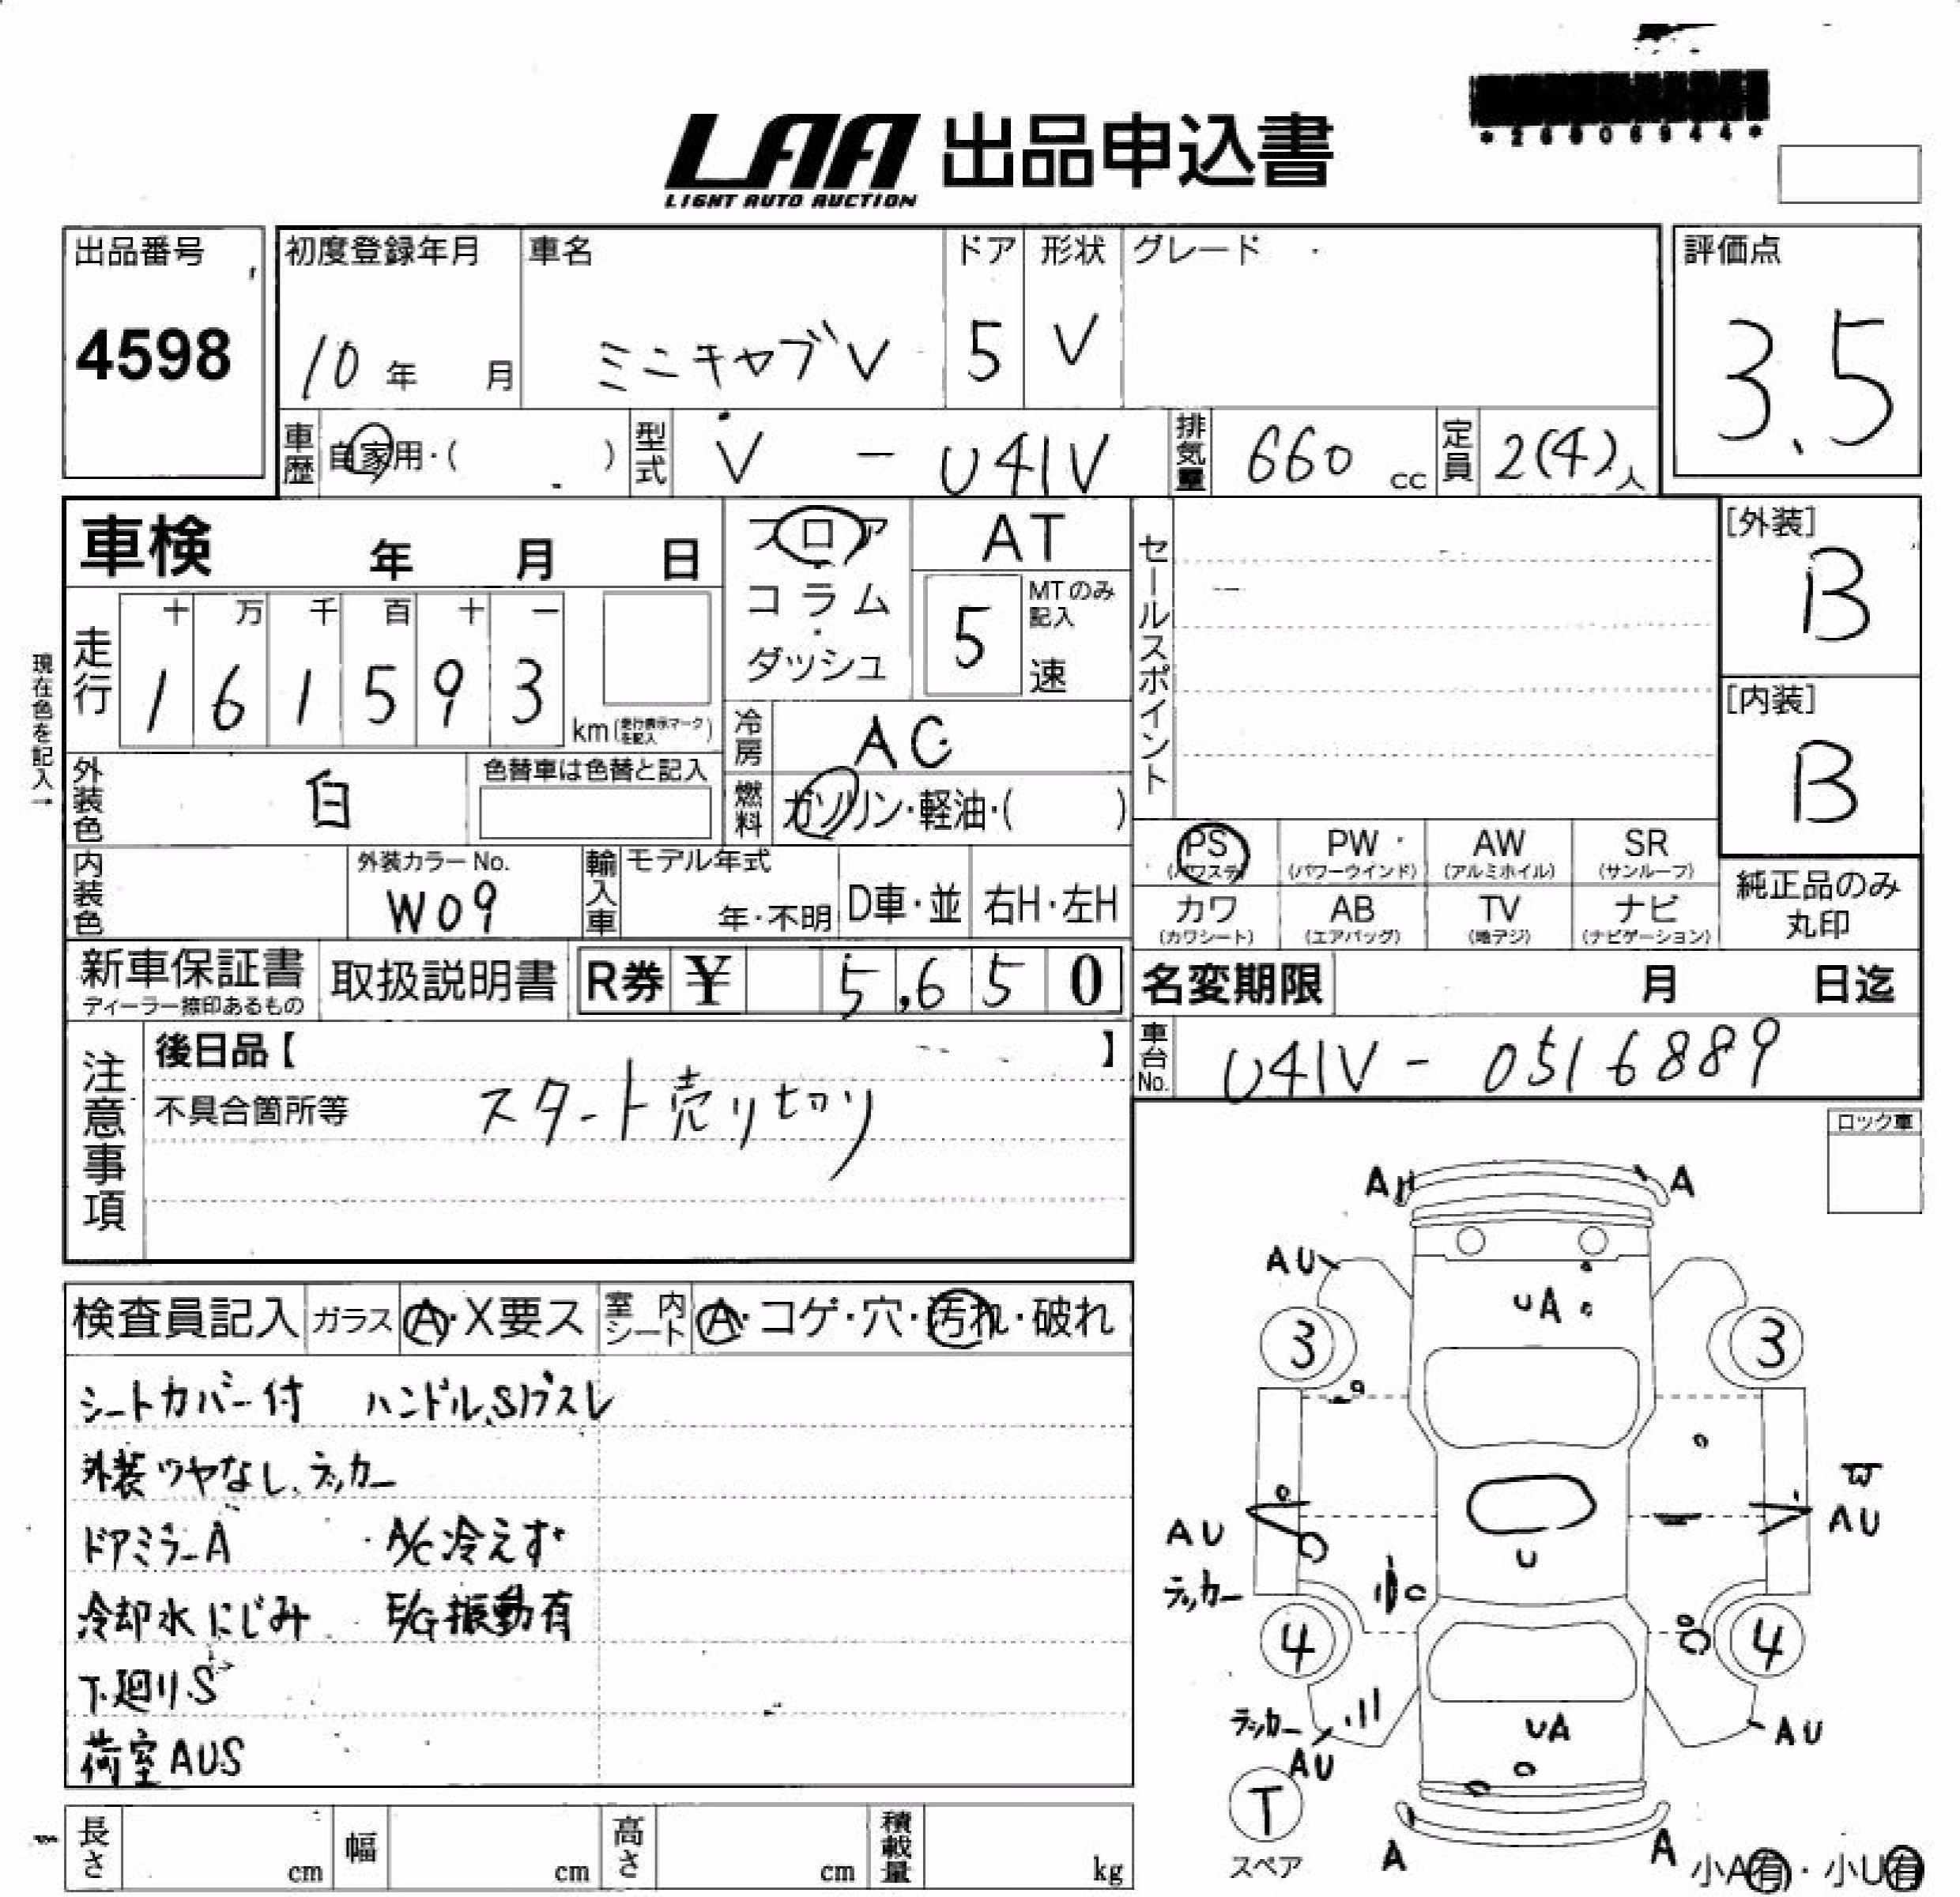 LAA 出品申込書
LIGHT AUTO AUCTION
出品番号
4598
初度登録年月
10年 月
車名
ミニキャブV
ドア
5
形状
V
グレード
評価点
3.5
車歴
自家用・( )
型式
V - U41V
排気量
660 cc
定員
2(4)人
車検 年 月 日
フロア
コラム
ダッシュ
AT
5
MTのみ記入
速
セールスポイント
[外装]
B
[内装]
B
現在色を記入→
走行
十 万 千 百 十 一
1 6 1 5 9 3
km(走行表示マークを記入)
冷房
AC
燃料
ガソリン・軽油・( )
外装色
白
色替車は色替と記入
内装色
外装カラー No.
W09
輸入車
モデル年式
年・不明
D車・並
右H・左H
PS (パワステ)
PW (パワーウインド)
AW (アルミホイル)
SR (サンルーフ)
カワ (カワシート)
AB (エアバッグ)
TV (地デジ)
ナビ (ナビゲーション)
純正品のみ
丸印
新車保証書
ディーラー捺印あるもの
取扱説明書
R券 ¥ 5,650
名変期限 月 日迄
車台No.
U41V - 0516889
注意事項
後日品【 】
不具合箇所等
スタート売り切り
ロック車
検査員記入
ガラス
A・X要ス
室内シート
A・コゲ・穴・汚れ・破れ
シートカバー付 ハンドル、S/Pスレ
外装ツヤなし、ラッカー
ドアミラーA A/C冷えず
冷却水にじみ E/G振動有
下廻りS
荷室AUS
A A
AU
UA
3 3
AU AU
U
ラッカー
4 4
ラッカー
AU
UA
AU
T
スペア
A A
小A有・小U有
長さ cm
幅 cm
高さ cm
積載量 kg